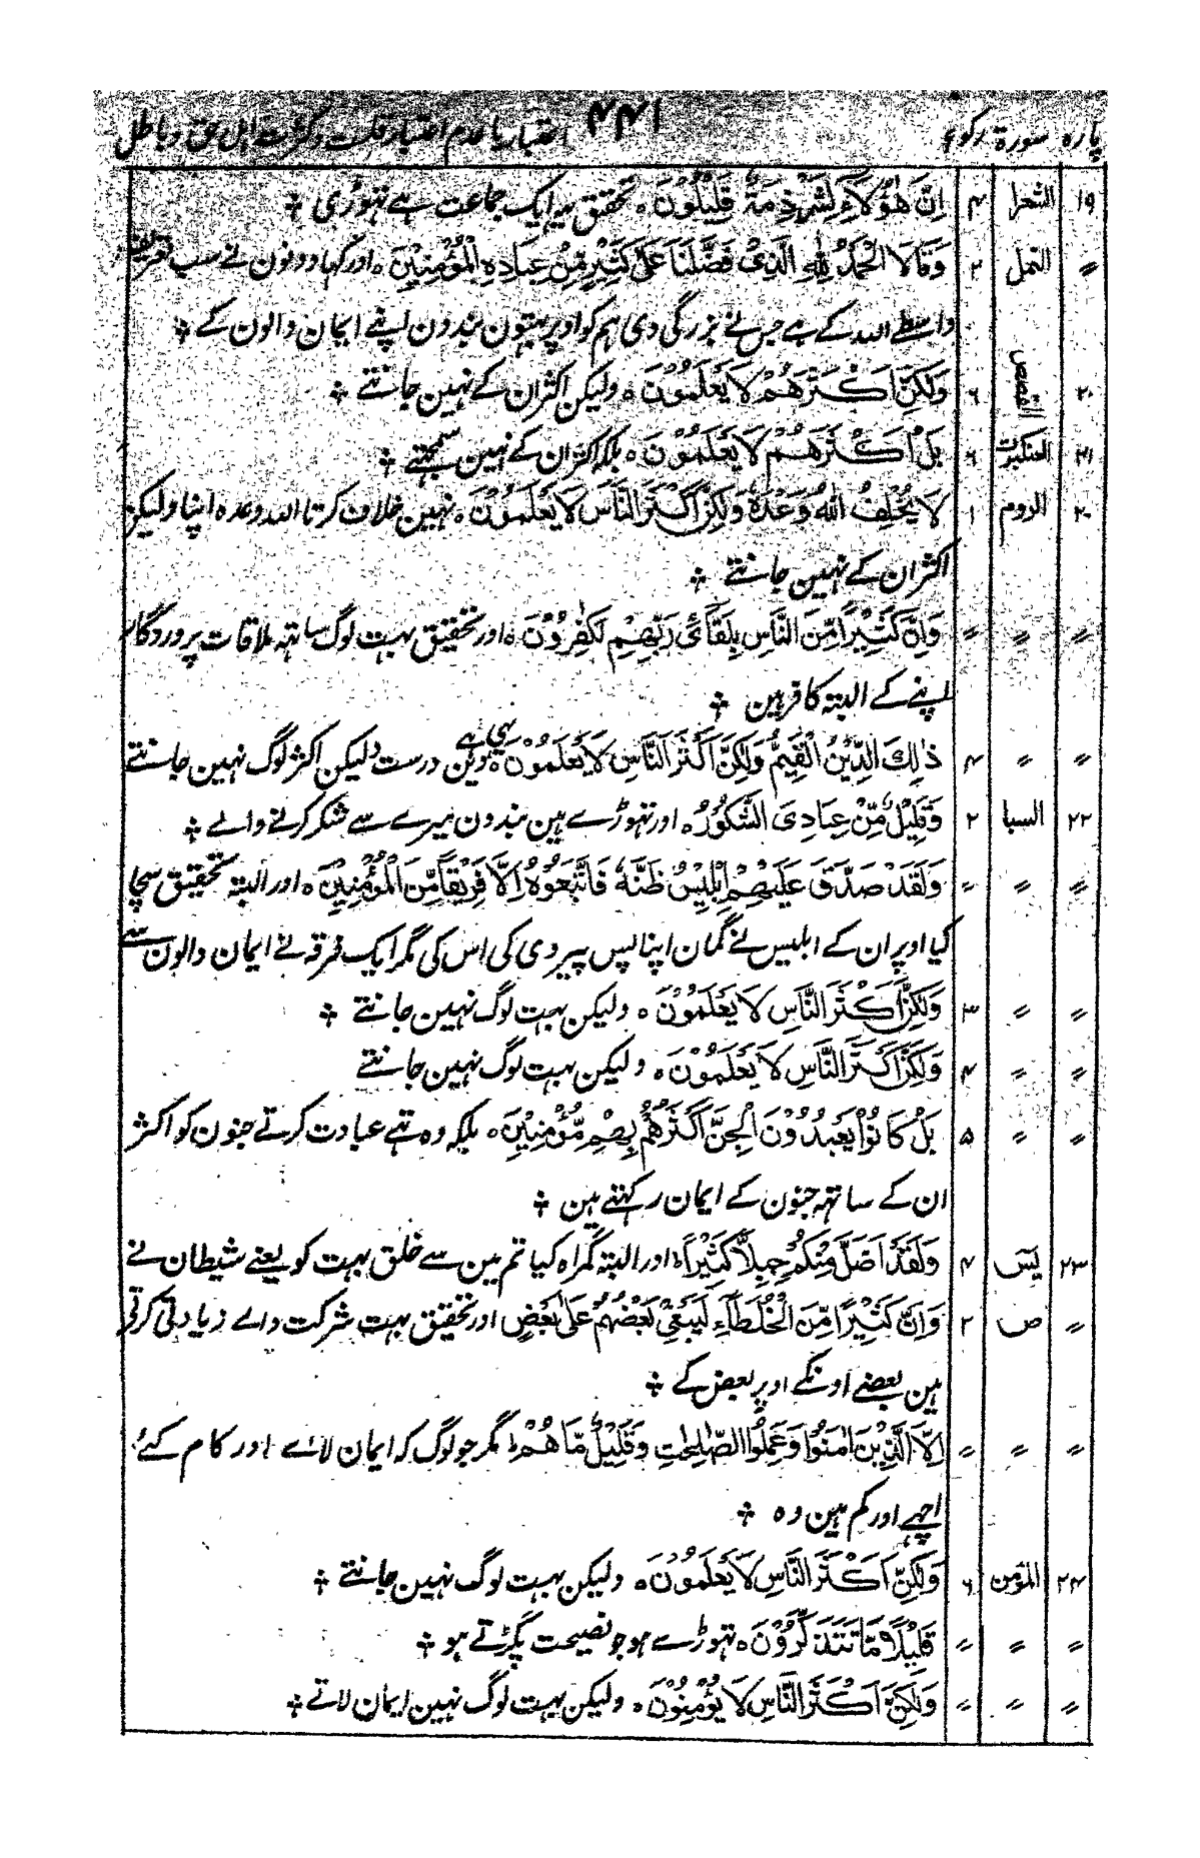 پارہ سورۃ رکوع ۴۴۱ اعتبار یا عدم اعتبار قلت و کثرت اہل حق و باطل
۱۹ الشعرا ۴ اِنَّ هٰٓؤُلَآءِ لَشِرْذِمَةٌ قَلِيْلُوْنَ ٥ تحقیق یہ ایک جماعت ہے تہوڑی ؞
〃 النمل ۲ وَقَالَا الْحَمْدُ لِلّٰهِ الَّذِيْ فَضَّلَنَا عَلٰى كَثِيْرٍ مِّنْ عِبَادِهِ الْمُؤْمِنِيْنَ ٥ اور کہا دونون نے سب تعریف
واسطے اللہ کے ہے جس نے بزرگی دی ہم کو اوپر بہتون بندون اپنے ایمان والون کے ؞
۲۰ القصص ۶ وَلٰكِنَّ اَكْثَرَهُمْ لَا يَعْلَمُوْنَ ٥ ولیکن اکثر ان کے نہین جانتے ؞
۲۱ العنکبوت ۶ بَلْ اَكْثَرُهُمْ لَا يَعْلَمُوْنَ ٥ بلکہ اکثر ان کے نہین سمجہتے ؞
۲۰ الروم ۱ لَا يُخْلِفُ اللّٰهُ وَعْدَهٗ وَلٰكِنَّ اَكْثَرَ النَّاسِ لَا يَعْلَمُوْنَ ٥ نہین خلاف کرتا اللہ وعدہ اپنا ولیکن
اکثر ان کے نہین جانتے ؞
〃 〃 〃 وَاِنَّ كَثِيْرًا مِّنَ النَّاسِ بِلِقَآئِ رَبِّهِمْ لَكٰفِرُوْنَ ٥ اور تحقیق بہت لوگ ساتہہ ملاقات پروردگار
اپنے کے البتہ کافر ہین ؞
〃 〃 ۴ ذٰلِكَ الدِّيْنُ الْقَيِّمُ وَلٰكِنَّ اَكْثَرَ النَّاسِ لَا يَعْلَمُوْنَ ٥ یہی ہے دین درست ولیکن اکثر لوگ نہین جانتے
۲۲ السبا ۲ وَقَلِيْلٌ مِّنْ عِبَادِيَ الشَّكُوْرُ ٥ اور تہوڑے ہین بندون میرے سے شکر کرنے والے ؞
〃 〃 〃 وَلَقَدْ صَدَّقَ عَلَيْهِمْ اِبْلِيْسُ ظَنَّهٗ فَاتَّبَعُوْهُ اِلَّا فَرِيْقًا مِّنَ الْمُؤْمِنِيْنَ ٥ اور البتہ تحقیق سچا
کیا اوپر ان کے ابلیس نے گمان اپنا پس پیروی کی اس کی مگر ایک فرقہ نے ایمان والون سے
〃 〃 ۳ وَلٰكِنَّ اَكْثَرَ النَّاسِ لَا يَعْلَمُوْنَ ٥ ولیکن بہت لوگ نہین جانتے ؞
〃 〃 ۴ وَلٰكِنَّ اَكْثَرَ النَّاسِ لَا يَعْلَمُوْنَ ٥ ولیکن بہت لوگ نہین جانتے
〃 〃 ۵ بَلْ كَانُوْا يَعْبُدُوْنَ الْجِنَّ اَكْثَرُهُمْ بِهِمْ مُّؤْمِنِيْنَ ٥ بلکہ وہ تہے عبادت کرتے جنون کو اکثر
ان کے ساتہہ جنون کے ایمان رکہتے ہین ؞
۲۳ یٰسٓ ۴ وَلَقَدْ اَضَلَّ مِنْكُمْ جِبِلًّا كَثِيْرًا ٥ اور البتہ گمراہ کیا تم مین سے خلق بہت کو یعنے شیطان نے
〃 ص ۲ وَاِنَّ كَثِيْرًا مِّنَ الْخُلَطَآءِ لَيَبْغِيْ بَعْضُهُمْ عَلٰى بَعْضٍ اور تحقیق بہت شرکت والے زیادتی کرتی
ہین بعضے اونکے اوپر بعض کے ؞
〃 〃 〃 اِلَّا الَّذِيْنَ اٰمَنُوْا وَعَمِلُوا الصّٰلِحٰتِ وَقَلِيْلٌ مَّا هُمْ ط مگر جو لوگ کہ ایمان لائے اور کام کئے
اچہے اور کم ہین وہ ؞
۲۴ المؤمن ۶ وَلٰكِنَّ اَكْثَرَ النَّاسِ لَا يَعْلَمُوْنَ ٥ ولیکن بہت لوگ نہین جانتے ؞
〃 〃 〃 قَلِيْلًا مَّا تَتَذَكَّرُوْنَ ٥ تہوڑے ہو جو نصیحت پکڑتے ہو ؞
〃 〃 〃 وَلٰكِنَّ اَكْثَرَ النَّاسِ لَا يُؤْمِنُوْنَ ٥ ولیکن بہت لوگ نہین ایمان لاتے ؞